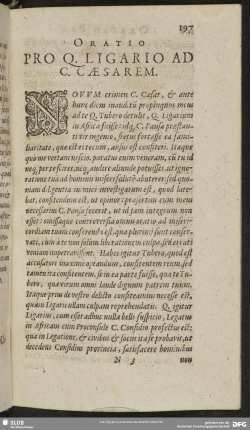 197
ORATIO
PRO Q. LIGARIO AD
C. CÆSAREM.
NOVVM crimen C. Cæsar, & ante
hunc diem inauditū propinquus meus
ad te Q. Tubero detulit, Q. Ligarium
in Africa fuisse: idq́; C. Pansa præstan-
ti vir ingenio, fretus fortasse ea fami-
liaritate, quæ est ei tecum, ausus est confiteri. Itaque
quò me vertam nescio. paratus enim veneram, cū tu id
neq; per te scires, neq; audire aliunde potuisses, ut igno-
ratione tua ad hominis miseri salutē abuterer: sed quo-
niam diligentia inimici investigatum est, quod late-
bat, confitendum est, ut opinor: præsertim cum meus
necessarius C. Pansa fecerit, ut id jam integrum non
esset: omissaque controversia omnis oratio ad miseri-
cordiam tuam conferenda est, qua plurimi sunt conser-
vati, cum à te non solum liberationem culpæ, sed errati
veniam impetravissent. Habes igitur Tubero, quod est
accusatori maxime optandum, confitentem reum, sed
tamen ita confitentem, se in ea parte fuisse, qua te Tu-
bero, qua virum omni laude dignum patrem tuum.
Itaque prius de vestro delicto confiteamini necesse est,
quàm Ligarii ullam culpam reprehendatis. Q. igitur
Ligarius, cum esset adhuc nulla belli suspitio, Legatus
in Africam cum Proconsule C. Considio profectus est:
qua in Legatione, & civibus & sociis ita se probavit, ut
decedens Considius provincia, satisfacere hominibus
N 3 non
SLUB
DFG